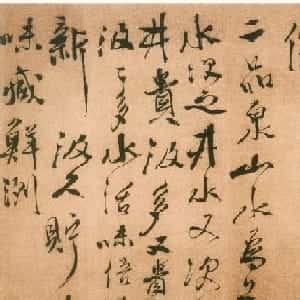 二品泉山水為
水次之井水又次
井貴汲多又貴
汲〻多水活味倍
新汲久貯
味減鮮洌